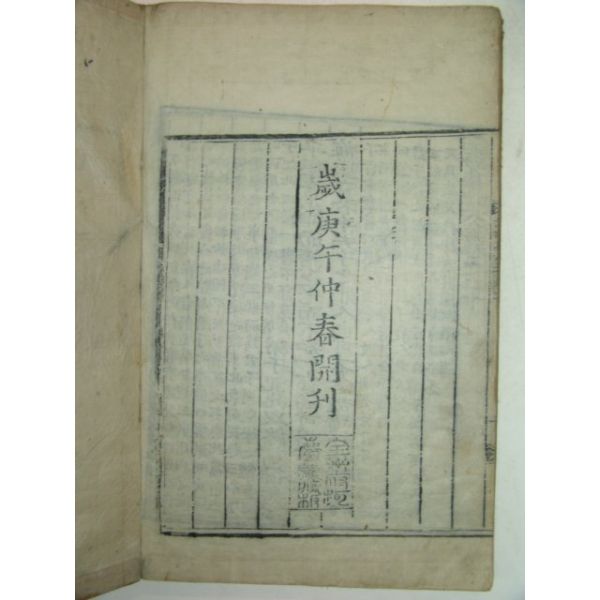 歲庚午仲春開刋